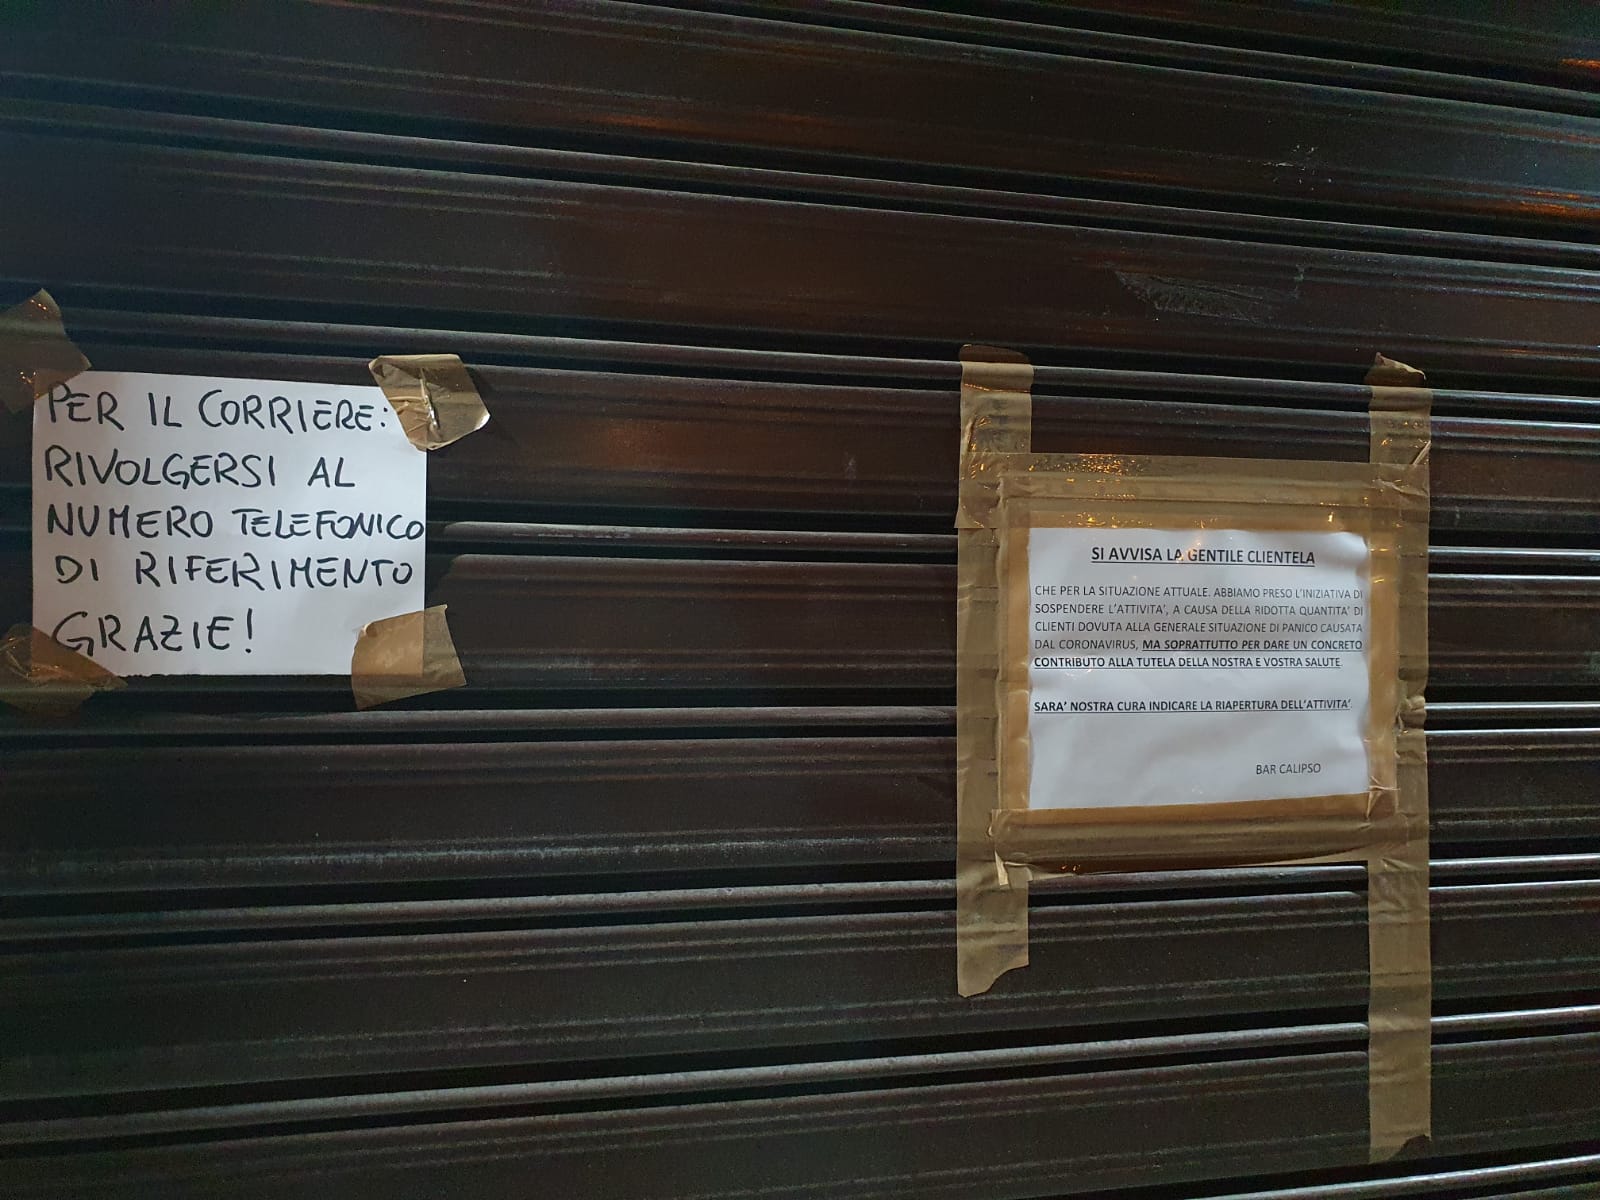 PER IL CORRIERE:
RIVOLGERSI AL
NUMERO TELEFONICO
DI RIFERIMENTO
GRAZIE!
SI AVVISA LA GENTILE CLIENTELA
CHE PER LA SITUAZIONE ATTUALE. ABBIAMO PRESO L'INIZIATIVA DI
SOSPENDERE L'ATTIVITA', A CAUSA DELLA RIDOTTA QUANTITA' DI
CLIENTI DOVUTA ALLA GENERALE SITUAZIONE DI PANICO CAUSATA
DAL CORONAVIRUS, MA SOPRATTUTTO PER DARE UN CONCRETO
CONTRIBUTO ALLA TUTELA DELLA NOSTRA E VOSTRA SALUTE.
SARA' NOSTRA CURA INDICARE LA RIAPERTURA DELL'ATTIVITA'.
BAR CALIPSO